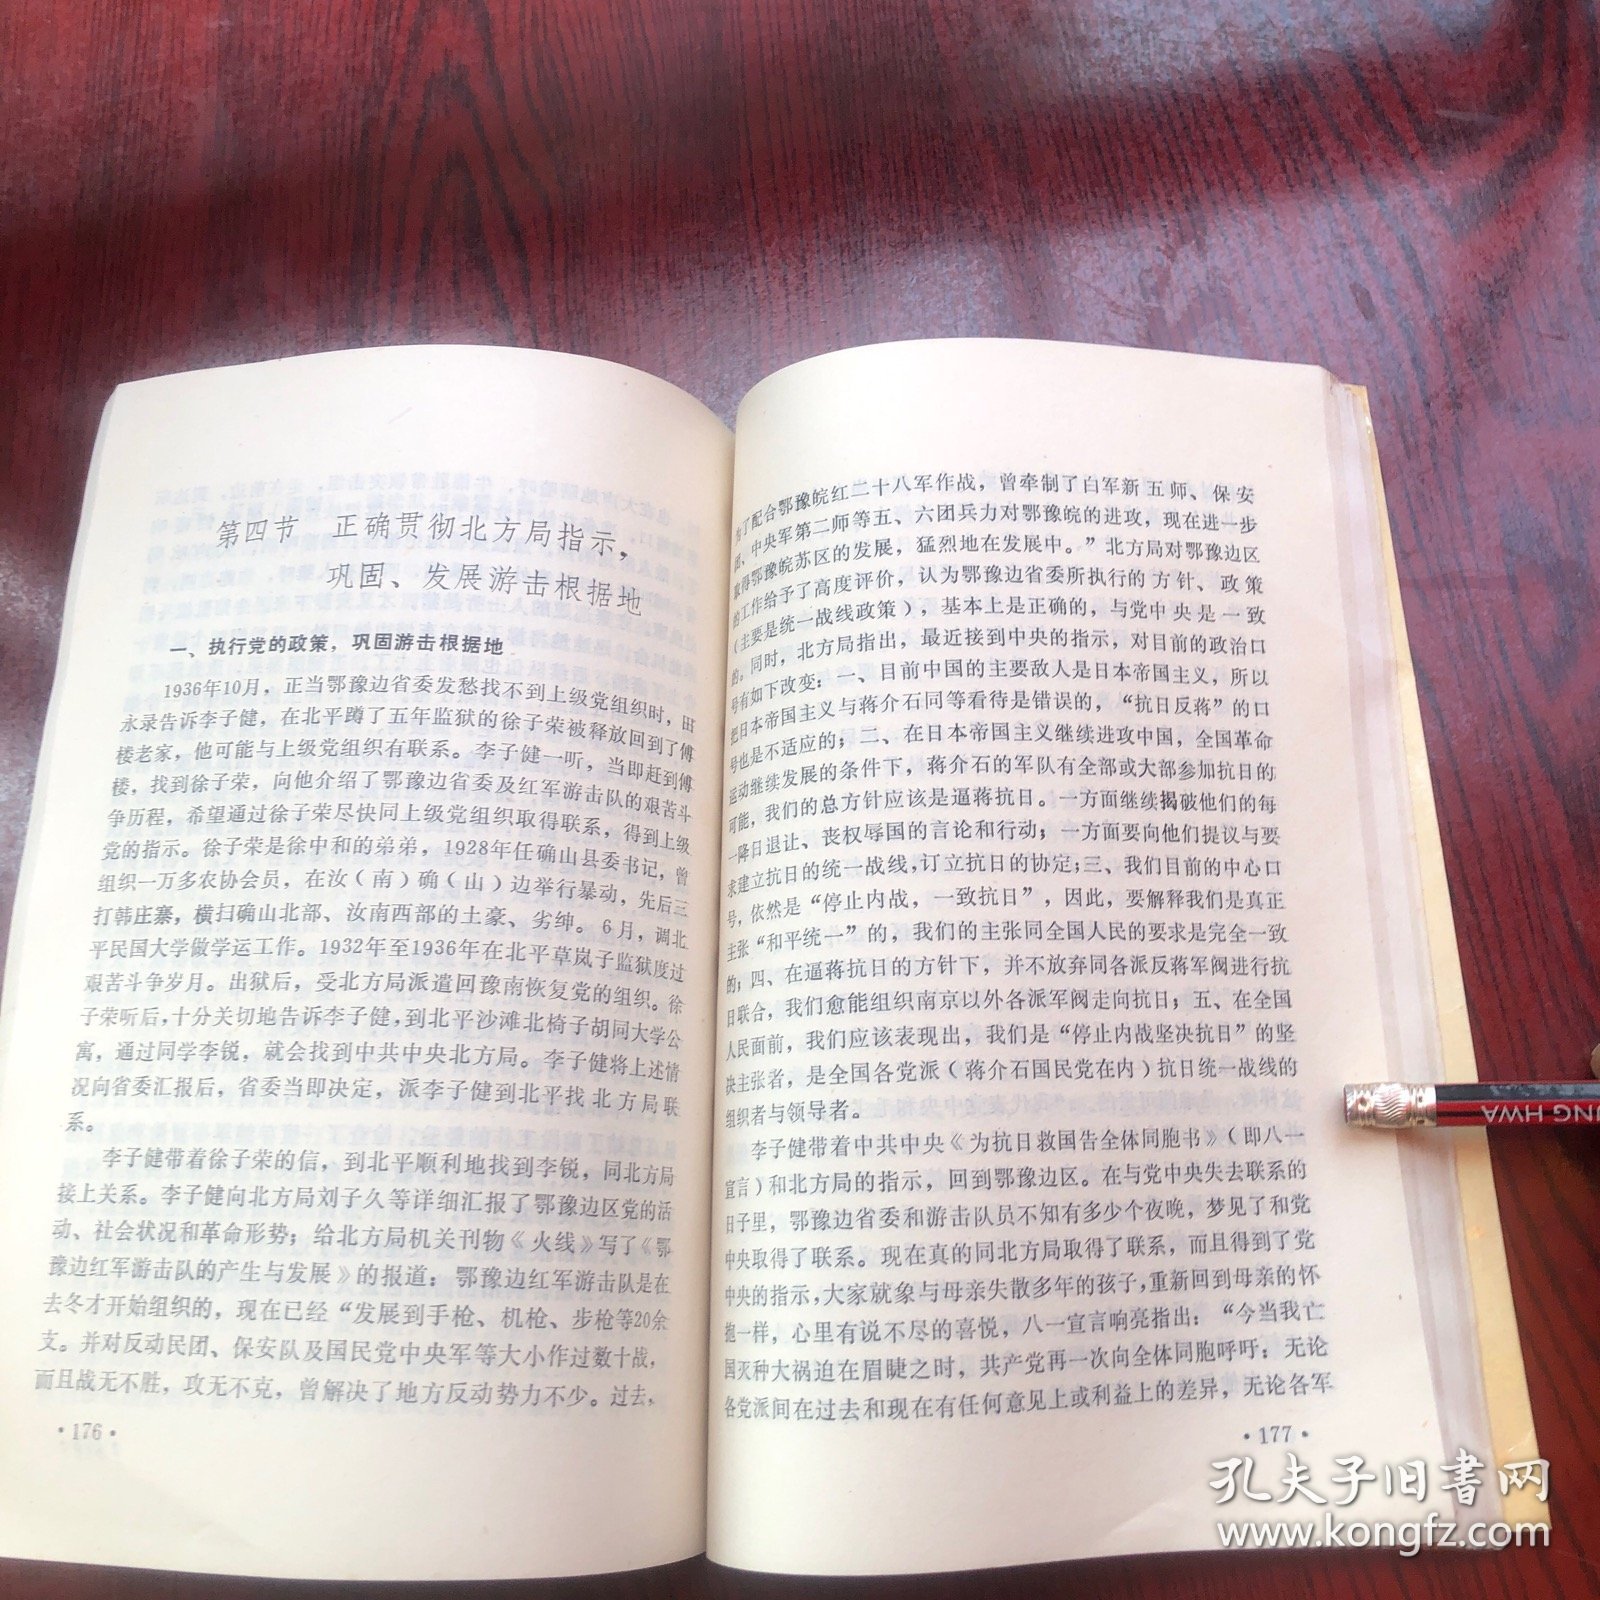 第四节 正确贯彻北方局指示，
巩固、发展游击根据地
一、执行党的政策，巩固游击根据地
1936年10月，正当鄂豫边省委发愁找不到上级党组织时，田
永录告诉李子健，在北平蹲了五年监狱的徐子荣被释放回到了傅
楼老家，他可能与上级党组织有联系。李子健一听，当即赶到傅
楼，找到徐子荣，向他介绍了鄂豫边省委及红军游击队的艰苦斗
争历程，希望通过徐子荣尽快同上级党组织取得联系，得到上级
党的指示。徐子荣是徐中和的弟弟，1928年任确山县委书记，曾
组织一万多农协会员，在汝（南）确（山）边举行暴动，先后三
打韩庄寨，横扫确山北部、汝南西部的土豪、劣绅。6月，调北
平民国大学做学运工作。1932年至1936年在北平草岚子监狱度过
艰苦斗争岁月。出狱后，受北方局派遣回豫南恢复党的组织。徐
子荣听后，十分关切地告诉李子健，到北平沙滩北椅子胡同大学公
寓，通过同学李锐，就会找到中共中央北方局。李子健将上述情
况向省委汇报后，省委当即决定，派李子健到北平找北方局联
系。
李子健带着徐子荣的信，到北平顺利地找到李锐，同北方局
接上关系。李子健向北方局刘子久等详细汇报了鄂豫边区党的活
动、社会状况和革命形势；给北方局机关刊物《火线》写了《鄂
豫边红军游击队的产生与发展》的报道：鄂豫边红军游击队是在
去冬才开始组织的，现在已经“发展到手枪、机枪、步枪等20余
支。并对反动民团、保安队及国民党中央军等大小作过数十战，
而且战无不胜，攻无不克，曾解决了地方反动势力不少。过去，
·176·
为了配合鄂豫皖红二十八军作战，曾牵制了白军新五师、保安
团、中央军第二师等五、六团兵力对鄂豫皖的进攻，现在进一步
取得鄂豫皖苏区的发展，猛烈地在发展中。”北方局对鄂豫边区
的工作给予了高度评价，认为鄂豫边省委所执行的方针、政策
（主要是统一战线政策），基本上是正确的，与党中央是一致
的。同时，北方局指出，最近接到中央的指示，对目前的政治口
号有如下改变：一、目前中国的主要敌人是日本帝国主义，所以
把日本帝国主义与蒋介石同等看待是错误的，“抗日反蒋”的口
号也是不适应的；二、在日本帝国主义继续进攻中国，全国革命
运动继续发展的条件下，蒋介石的军队有全部或大部参加抗日的
可能，我们的总方针应该是逼蒋抗日。一方面继续揭破他们的每
一降日退让、丧权辱国的言论和行动；一方面要向他们提议与要
求建立抗日的统一战线，订立抗日的协定；三、我们目前的中心口
号，依然是“停止内战，一致抗日”，因此，要解释我们是真正
主张“和平统一”的，我们的主张同全国人民的要求是完全一致
的；四、在逼蒋抗日的方针下，并不放弃同各派反蒋军阀进行抗
日联合，我们愈能组织南京以外各派军阀走向抗日；五、在全国
人民面前，我们应该表现出，我们是“停止内战坚决抗日”的坚
决主张者，是全国各党派（蒋介石国民党在内）抗日统一战线的
组织者与领导者。
李子健带着中共中央《为抗日救国告全体同胞书》（即八一
宣言）和北方局的指示，回到鄂豫边区。在与党中央失去联系的
日子里，鄂豫边省委和游击队员不知有多少个夜晚，梦见了和党
中央取得了联系。现在真的同北方局取得了联系，而且得到了党
中央的指示，大家就象与母亲失散多年的孩子，重新回到母亲的怀
抱一样，心里有说不尽的喜悦，八一宣言响亮指出：“今当我亡
国灭种大祸迫在眉睫之时，共产党再一次向全体同胞呼吁：无论
各党派间在过去和现在有任何意见上或利益上的差异，无论各军
·177·
UNG HWA
孔夫子旧书网
www.kongfz.com